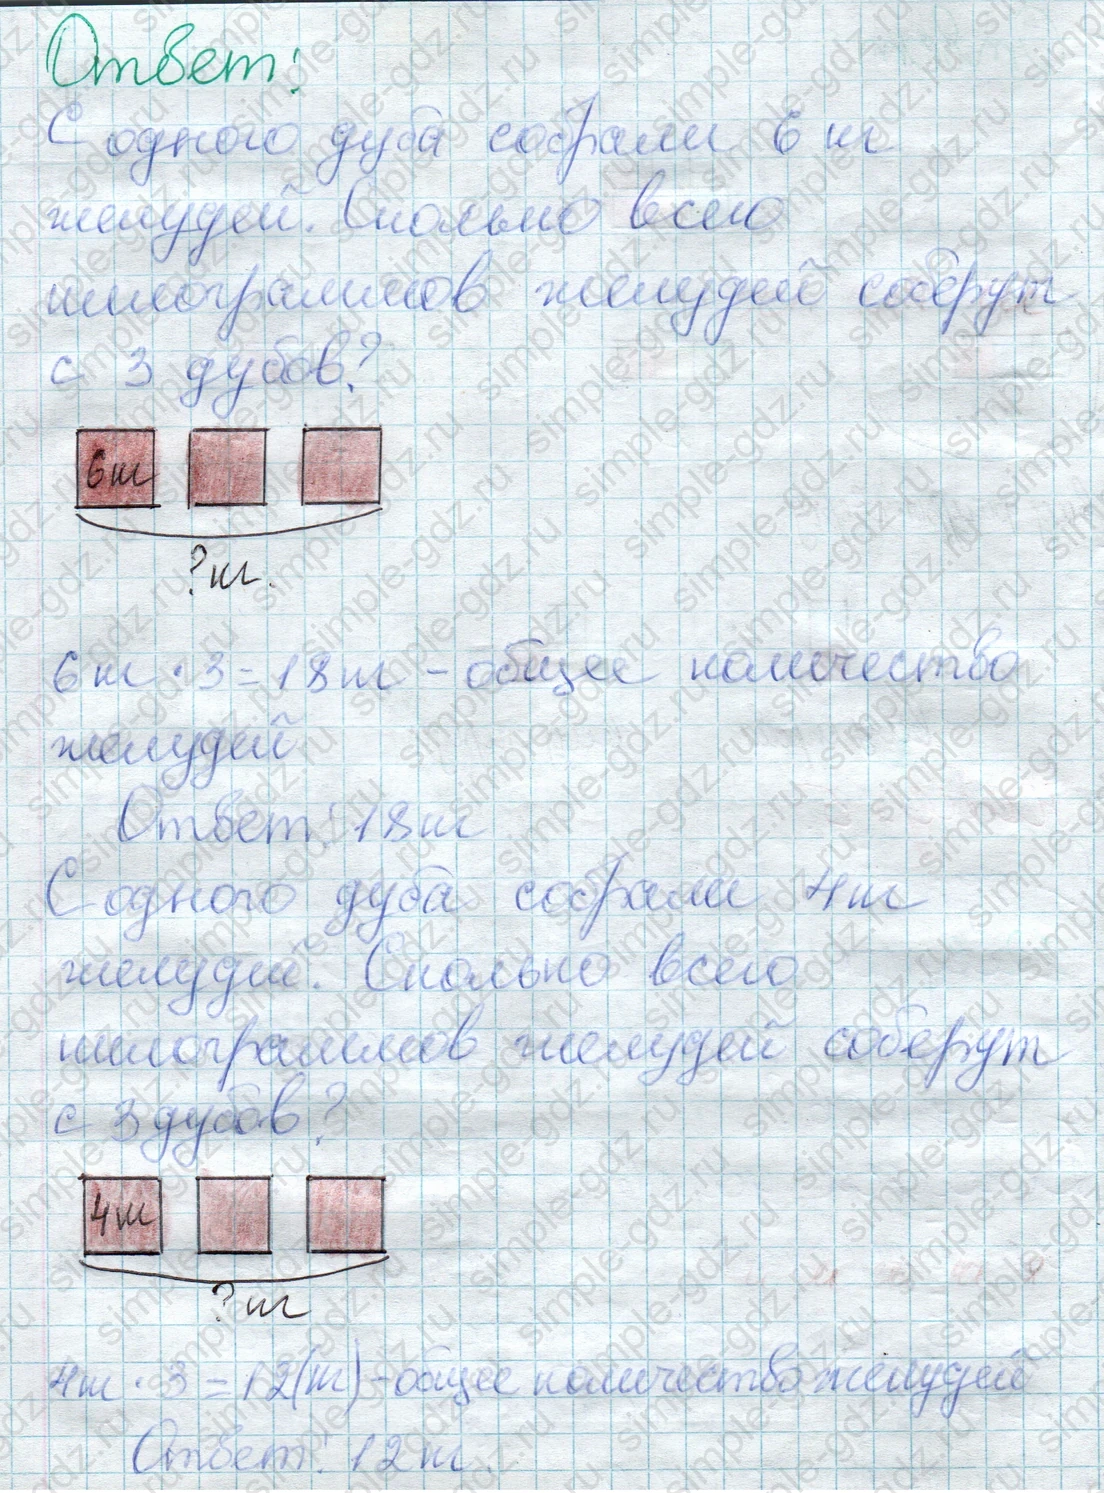 Ответ:
С одного дуба собрали 6 кг
желудей. Сколько всего
килограммов желудей соберут
с 3 дубов?
6кг
?кг.
6кг · 3 = 18кг - общее количество
желудей
Ответ: 18кг
С одного дуба собрали 4кг
желудей. Сколько всего
килограммов желудей соберут
с 3 дубов?
4кг
?кг
4кг · 3 = 12(кг) - общее количество желудей
Ответ: 12кг.
simple-gdz.ru